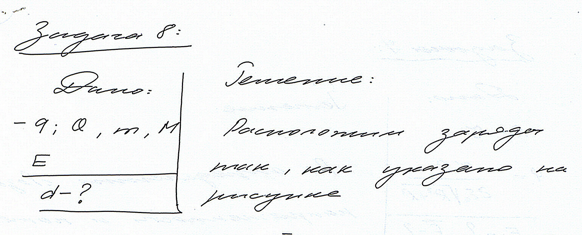 Задача 8:
Дано:
Решение:
-q; Q, m, M
E
d-?
Расположим заряды
так, как указано на
рисунке